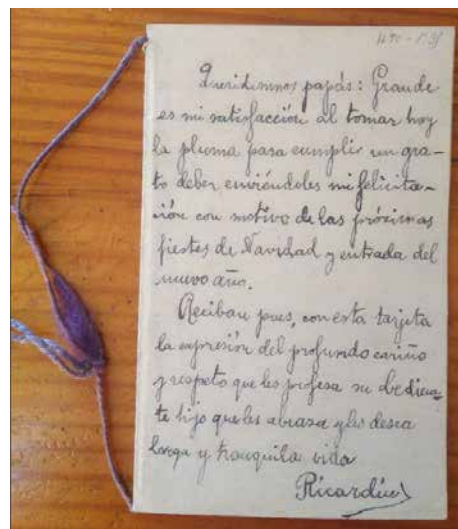 Queridimnos papás: Grande
es mi satisfacción al tomar hoy
la pluma para cumplir un gra-
to deber enviéndoles mi felicita-
ción con motivo de las próximas
fiestes de Navidad y entrada del
nuevo año.
Reciban pues, con esta tarjeta
la expresión del profundo cariño
y respeto que les profesa su bedien-
te hijo que les abraza y les desea
larga y tranquila vida
Ricardín